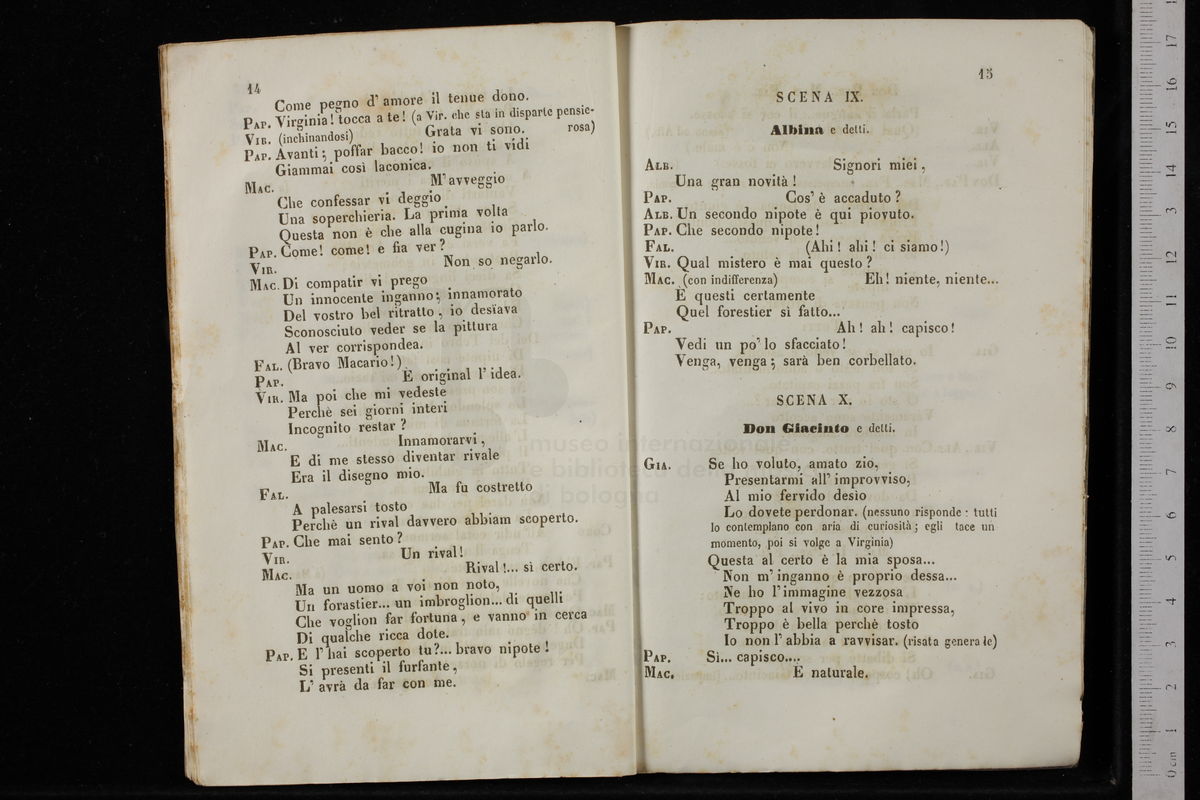 14
Come pegno d' amore il tenue dono.
PAP. Virginia! tocca a te! (a Vir. che sta in disparte pensie-
VIR. (inchinandosi) Grata vi sono. rosa)
PAP. Avanti; poffar bacco! io non ti vidi
Giammai così laconica.
MAC. M' avveggio
Che confessar vi deggio
Una soperchieria. La prima volta
Questa non è che alla cugina io parlo.
PAP. Come! come! e fia ver?
VIR. Non so negarlo.
MAC. Di compatir vi prego
Un innocente inganno; innamorato
Del vostro bel ritratto, io desïava
Sconosciuto veder se la pittura
Al ver corrispondea.
FAL. (Bravo Macario!)
PAP. E original l' idea.
VIR. Ma poi che mi vedeste
Perchè sei giorni interi
Incognito restar?
MAC. Innamorarvi,
E di me stesso diventar rivale
Era il disegno mio.
FAL. Ma fu costretto
A palesarsi tosto
Perchè un rival davvero abbiam scoperto.
PAP. Che mai sento?
VIR. Un rival!
MAC. Rival!... sì certo.
Ma un uomo a voi non noto,
Un forastier... un imbroglion... di quelli
Che voglion far fortuna, e vanno in cerca
Di qualche ricca dote.
PAP. E l' hai scoperto tu?... bravo nipote!
Si presenti il furfante,
L' avrà da far con me.
15
SCENA IX.
Albina e detti.
ALB. Signori miei,
Una gran novità!
PAP. Cos' è accaduto?
ALB. Un secondo nipote è qui piovuto.
PAP. Che secondo nipote!
FAL. (Ahi! ahi! ci siamo!)
VIR. Qual mistero è mai questo?
MAC. (con indifferenza) Eh! niente, niente...
È questi certamente
Quel forestier sì fatto...
PAP. Ah! ah! capisco!
Vedi un po' lo sfacciato!
Venga, venga; sarà ben corbellato.
SCENA X.
Don Giacinto e detti.
GIA. Se ho voluto, amato zio,
Presentarmi all' improvviso,
Al mio fervido desìo
Lo dovete perdonar. (nessuno risponde: tutti
lo contemplano con aria di curiosità; egli tace un
momento, poi si volge a Virginia)
Questa al certo è la mia sposa...
Non m' inganno è proprio dessa...
Ne ho l' immagine vezzosa
Troppo al vivo in core impressa,
Troppo è bella perchè tosto
Io non l' abbia a ravvisar. (risata generale)
PAP. Sì... capisco....
MAC. E naturale.
museo internazionale
e biblioteca della
di bologna